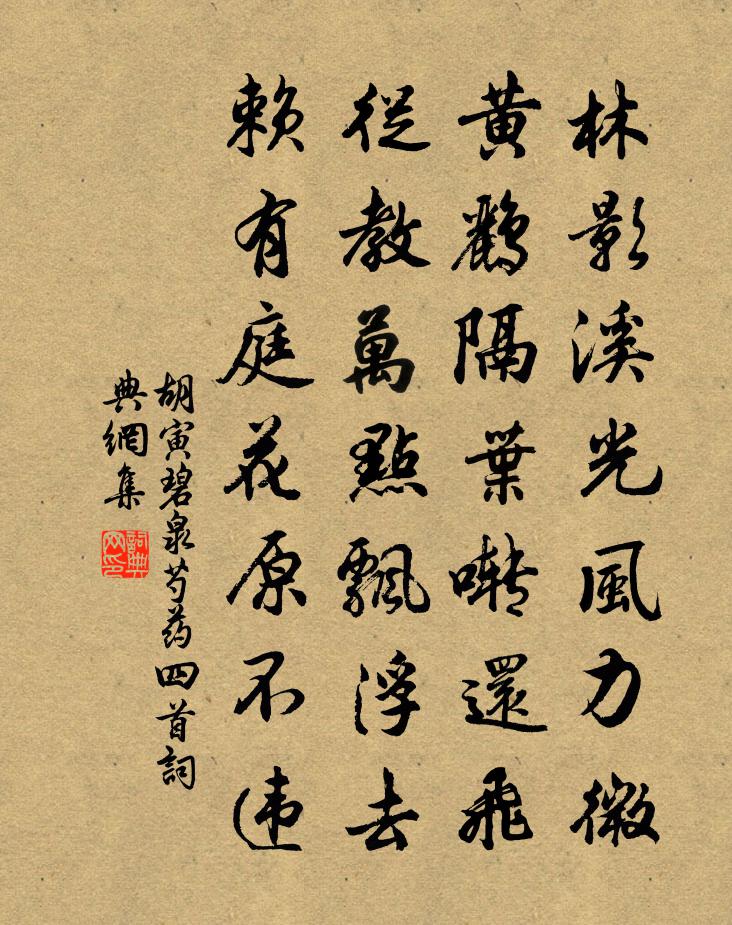 林影溪光風力微
黃鸝隔葉囀還飛
從教萬點飄浮去
賴有庭花原不違
胡寅碧泉芍药四首詞
典網集
詞典
网印